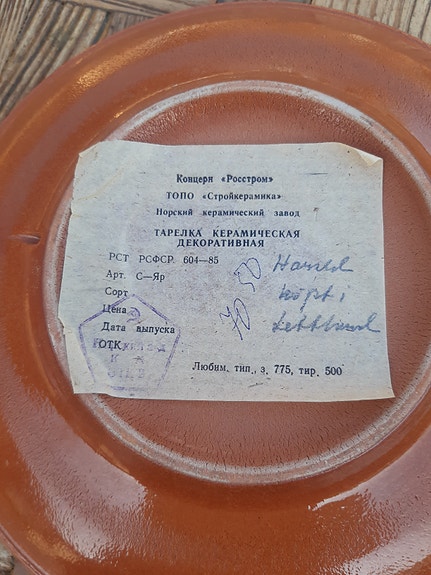 Концерн «Росстром»
ТОПО «Стройкерамика»
Норский керамический завод
ТАРЕЛКА КЕРАМИЧЕСКАЯ
ДЕКОРАТИВНАЯ
РСТ РСФСР 604—85
Арт. С—Яр
Сорт
Цена
Дата выпуска
ОТК
70 50
köpt i
Lettland
Любим. тип., з. 775, тир. 500